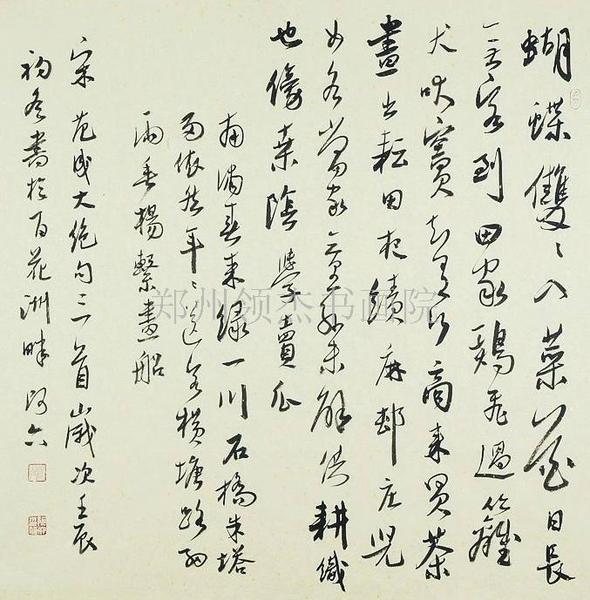 蝴蝶雙〻入菜花日長
無客到田家鷄飛過籬
犬吠竇知有行商來買茶
晝出耘田夜績麻邨莊兒
女各當家童孫未解供耕織
也傍桑陰學賣瓜
南浦春來綠一川石橋朱塔
兩依然年〻送客橫塘路細
雨垂楊繫畫船
宋范成大絕句三首歲次壬辰
初冬書於百花洲畔
郑州领杰书画院